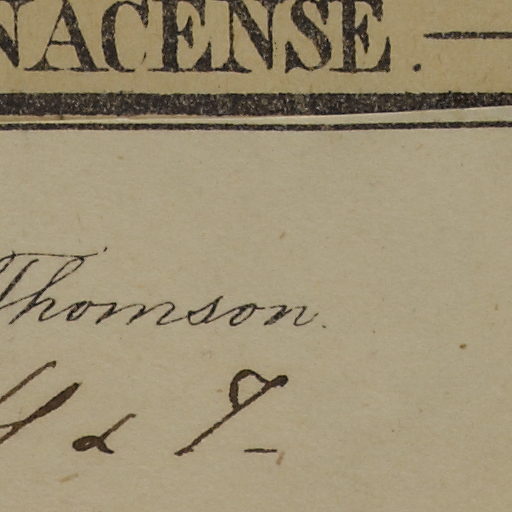 NACENSE. —
Thomson.
H & T—